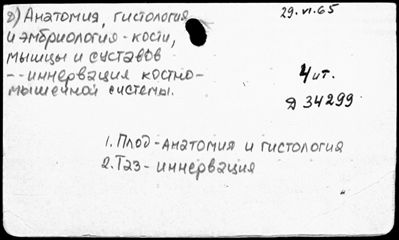 д) Анатомия, гистология
29.VI.65
и эмбриология - кости,
мышцы и суставов
-- иннервация костно-
мышечной системы.
4 ит.
Д 34299
1. Плод - анатомия и гистология
2. Таз - иннервация